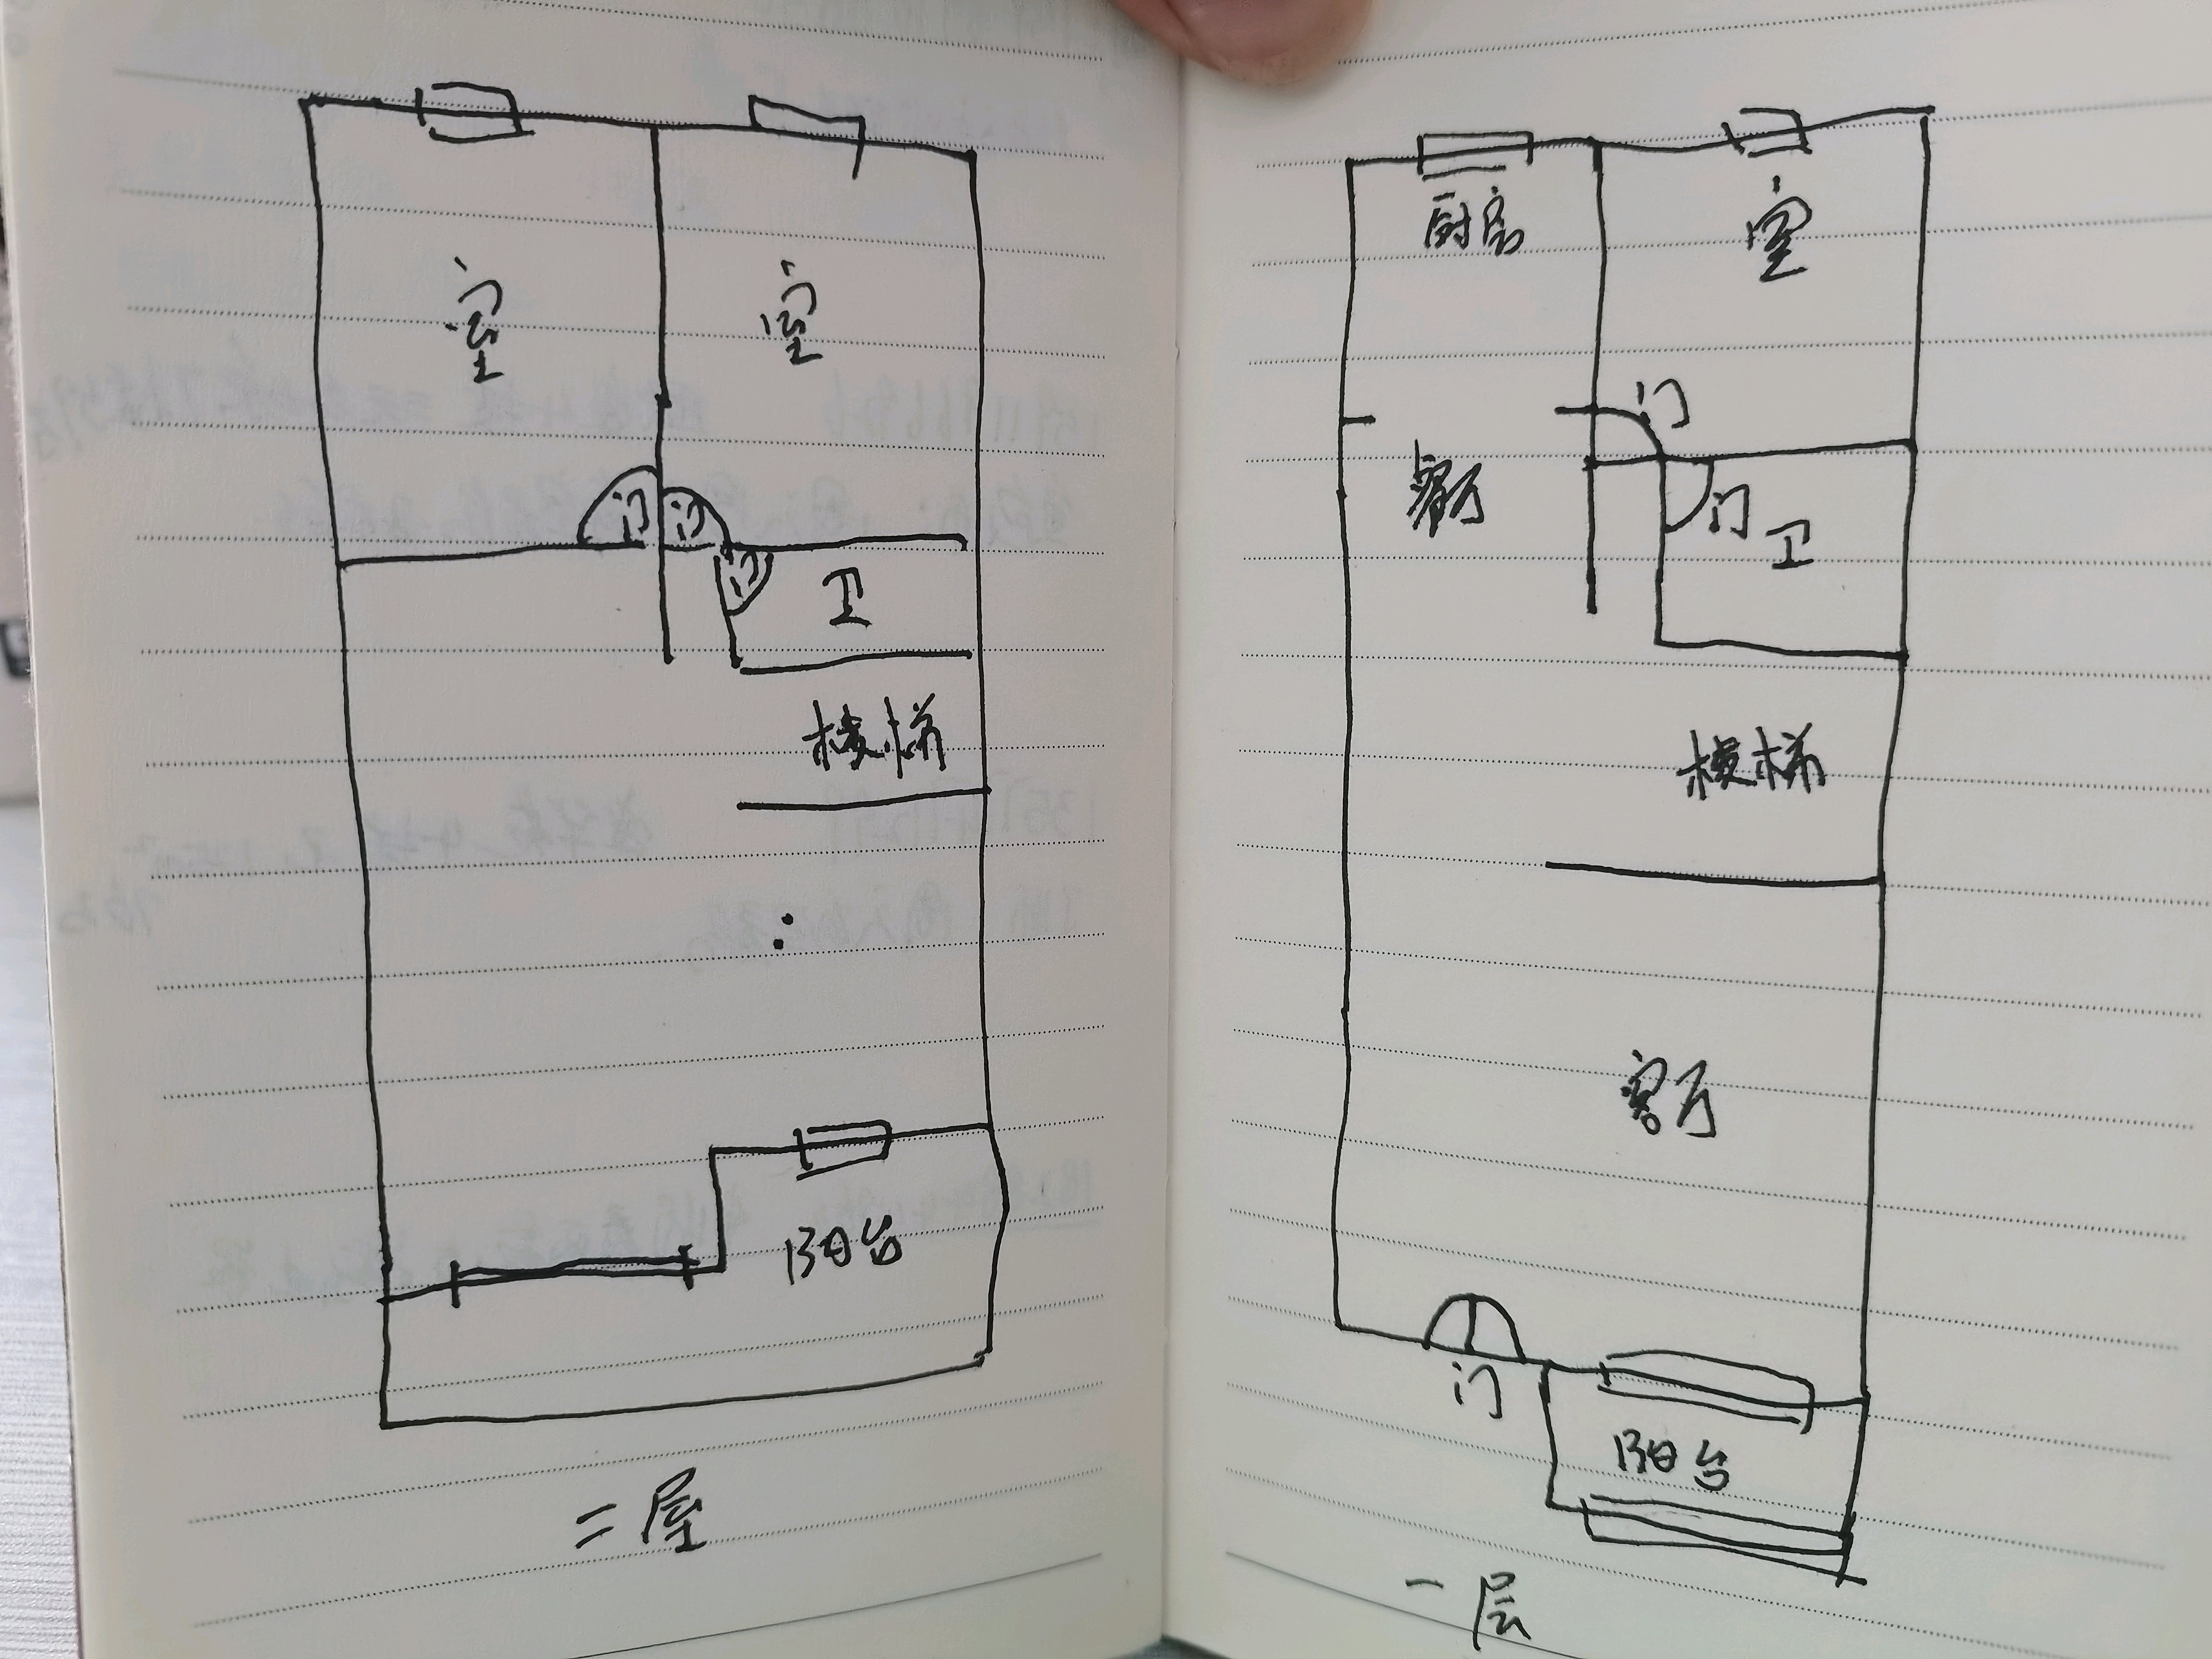 室 室
门 门
门 卫
楼梯
阳台
二层
厨房 室
门
客厅 门 卫
楼梯
客厅
门
阳台
一层